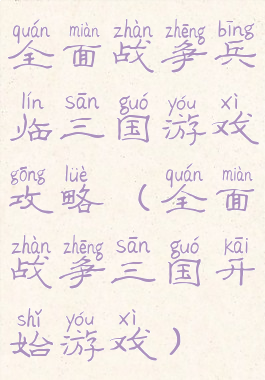 quán miàn zhàn zhēng bīng
全面战争兵
lín sān guó yóu xì
临三国游戏
gōng lüè quán miàn
攻略（全面
zhàn zhēng sān guó kāi
战争三国开
shǐ yóu xì
始游戏）